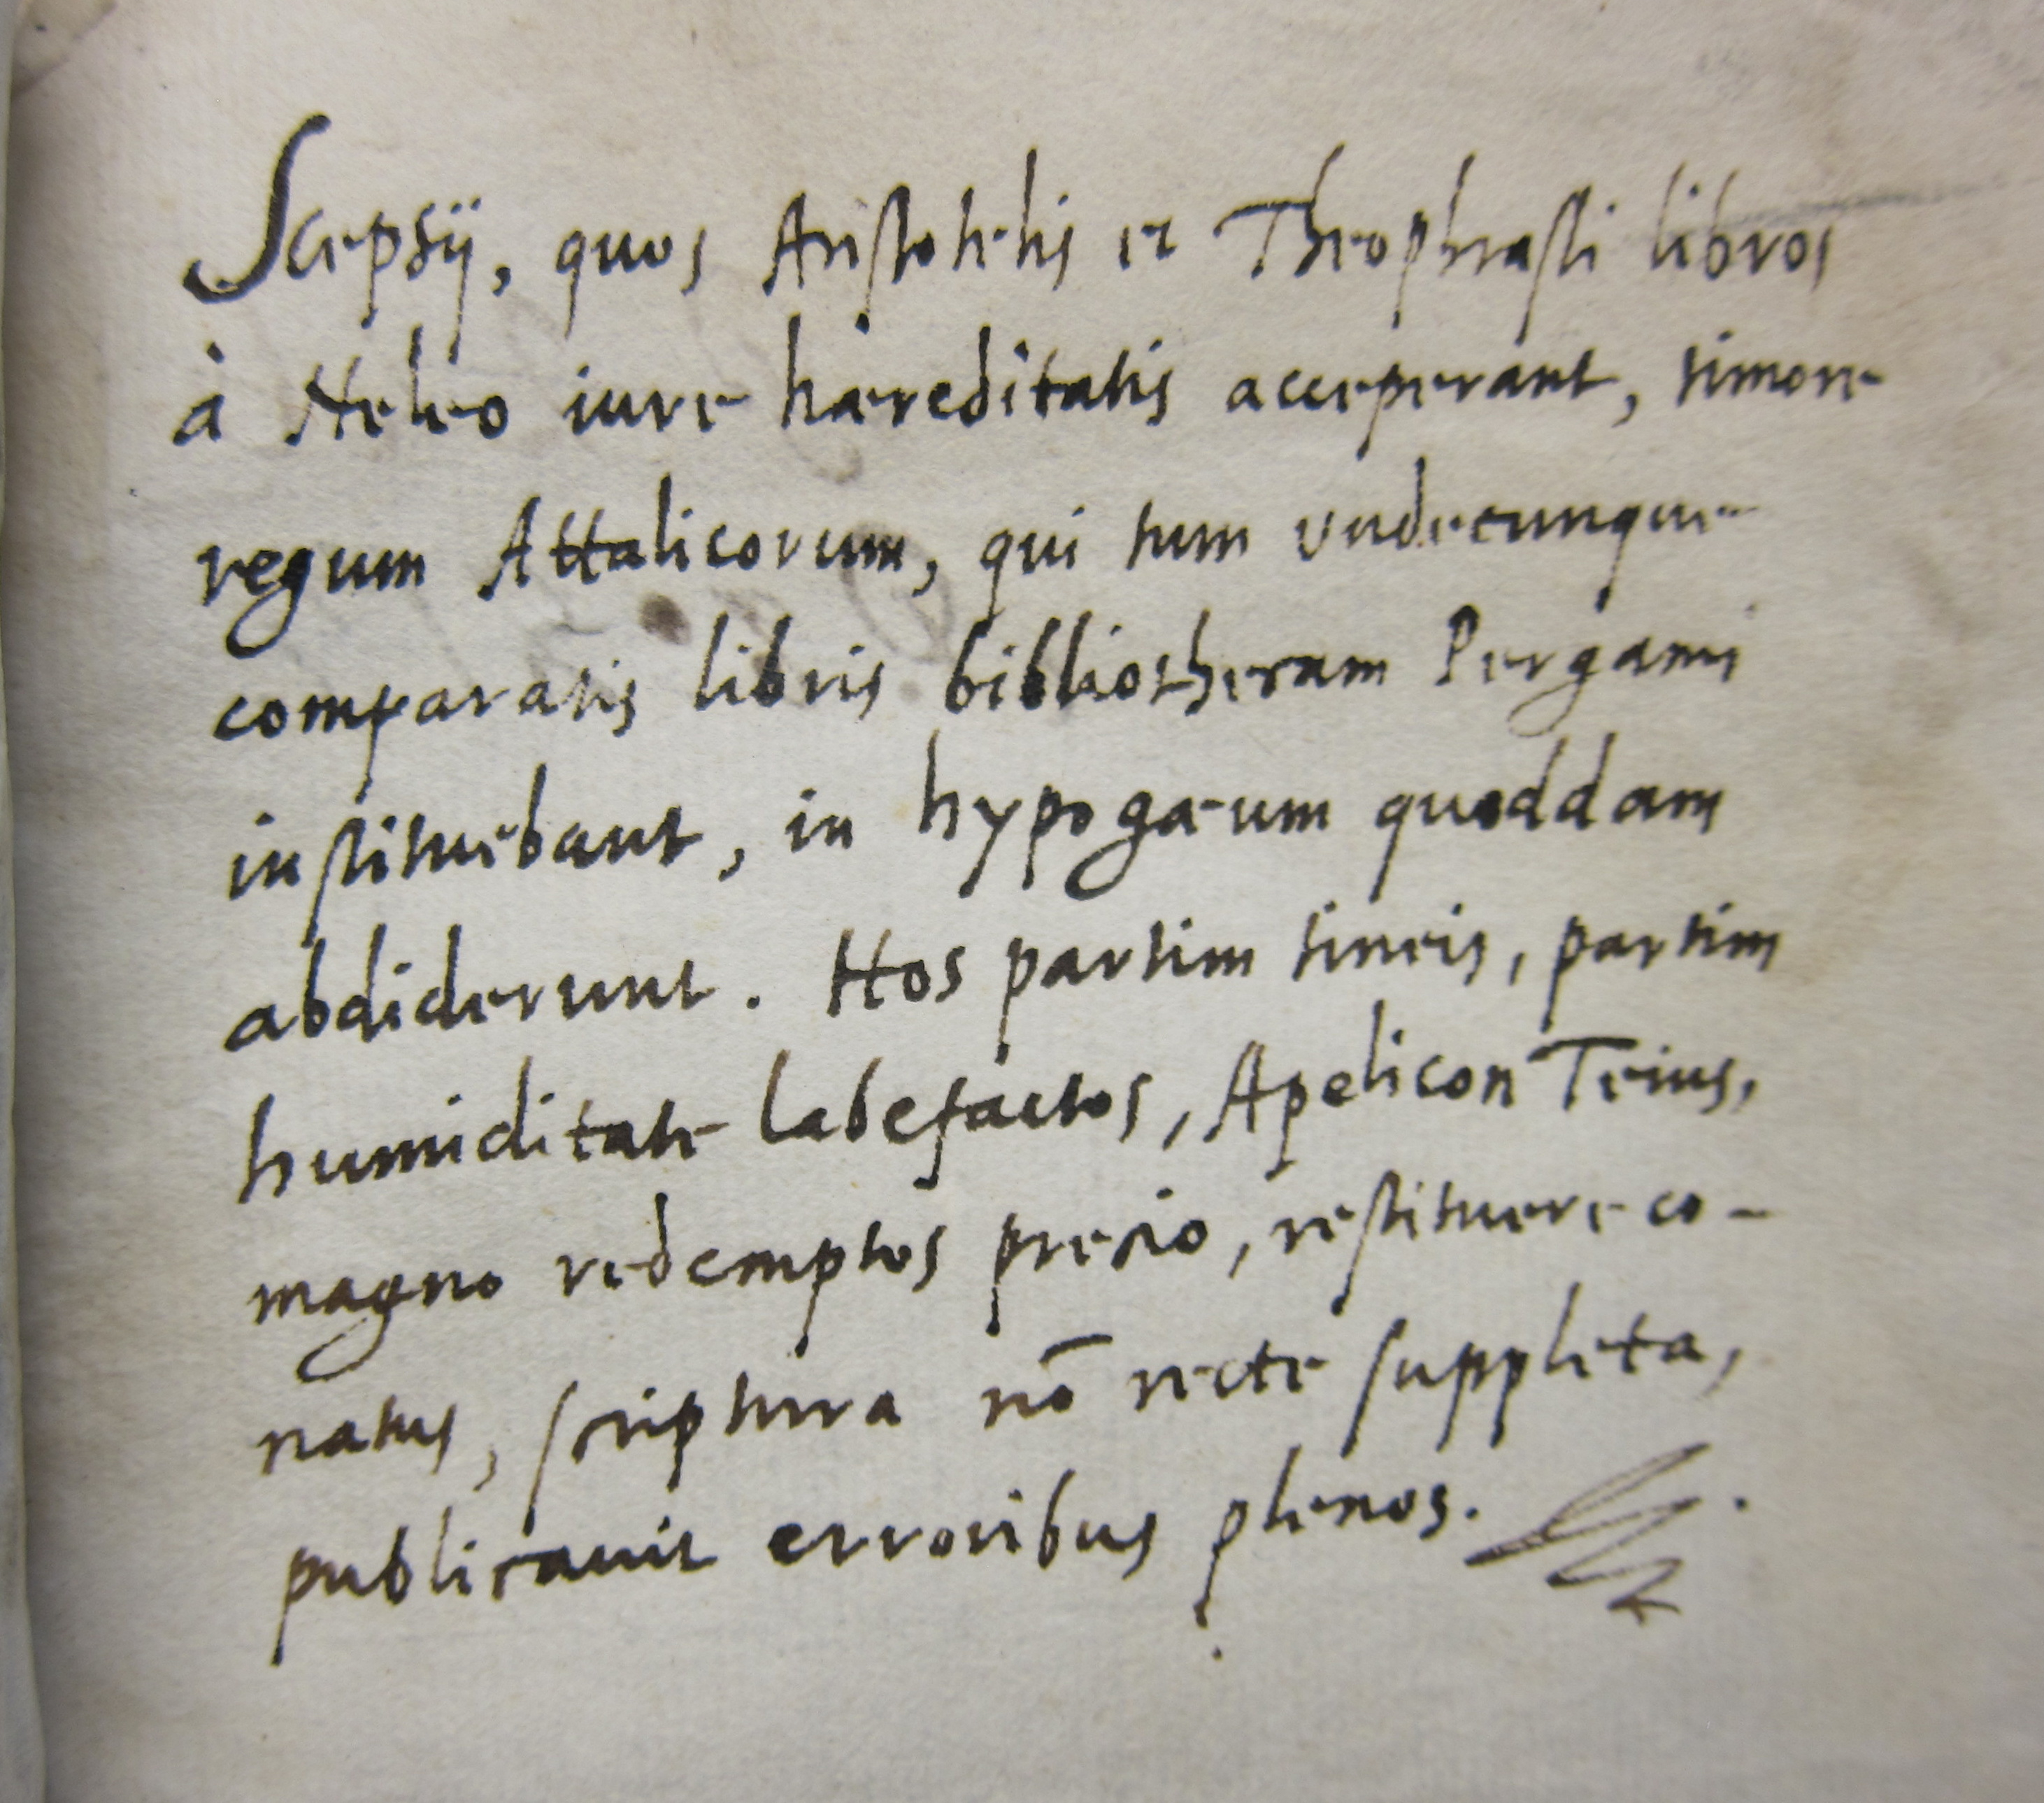 Scepsij, quos Aristotelis et Theophrasti libros
à Neleo iure hæreditatis acceperant, timore
regum Attalicorum, qui tum vndecunque
comparatis libris bibliothecam Pergami
instituebant, in hypogæum quoddam
abdiderunt. Hos partim tineis, partim
humiditate labefactos, Apelicon Teius,
magno redemptos precio, restituere co-
natus, scriptura nō recte suppleta,
publicauit erroribus plenos.